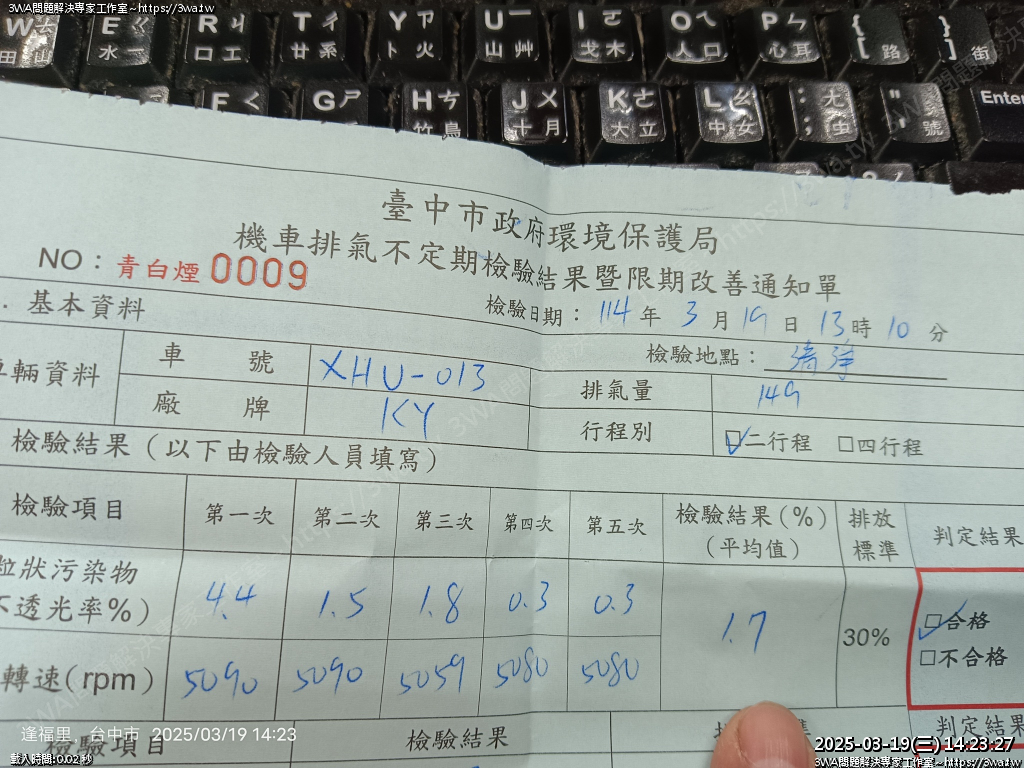 3WA問題解決專家工作室~https://3wa.tw
W 田
E 水
R ㄐ 口 工
T ㄔ 廿 糸
Y ㄗ 卜 火
U ㄧ 山 艸
I ㄛ 戈 木
O ㄟ 人 口
P ㄣ 心 耳
{ [ 路
} ] 街
F ㄑ
G ㄕ
H ㄘ 竹 鳥
J ㄨ 十 月
K ㄜ 大 立
L ㄠ 中 女
: ; ㄤ 虫
" ' 號
Enter
臺中市政府環境保護局
機車排氣不定期檢驗結果暨限期改善通知單
NO：青白煙0009
檢驗日期：114年3月19日13時10分
. 基本資料
檢驗地點：清洋
車輛資料
車 號
XHU-013
排氣量
149
廠 牌
KY
行程別
☑二行程 □四行程
檢驗結果（以下由檢驗人員填寫）
檢驗項目 第一次 第二次 第三次 第四次 第五次 檢驗結果(%)（平均值） 排放標準 判定結果
粒狀污染物
不透光率%) 4.4 1.5 1.8 0.3 0.3 1.7 30%
☑合格
□不合格
轉速(rpm) 5090 5090 5059 5080 5080
檢驗項目 檢驗結果 準 判定結果
逢福里，台中市 2025/03/19 14:23
載入時間:0.02 秒
2025-03-19(三) 14:23:27
3WA問題解決專家工作室~https://3wa.tw